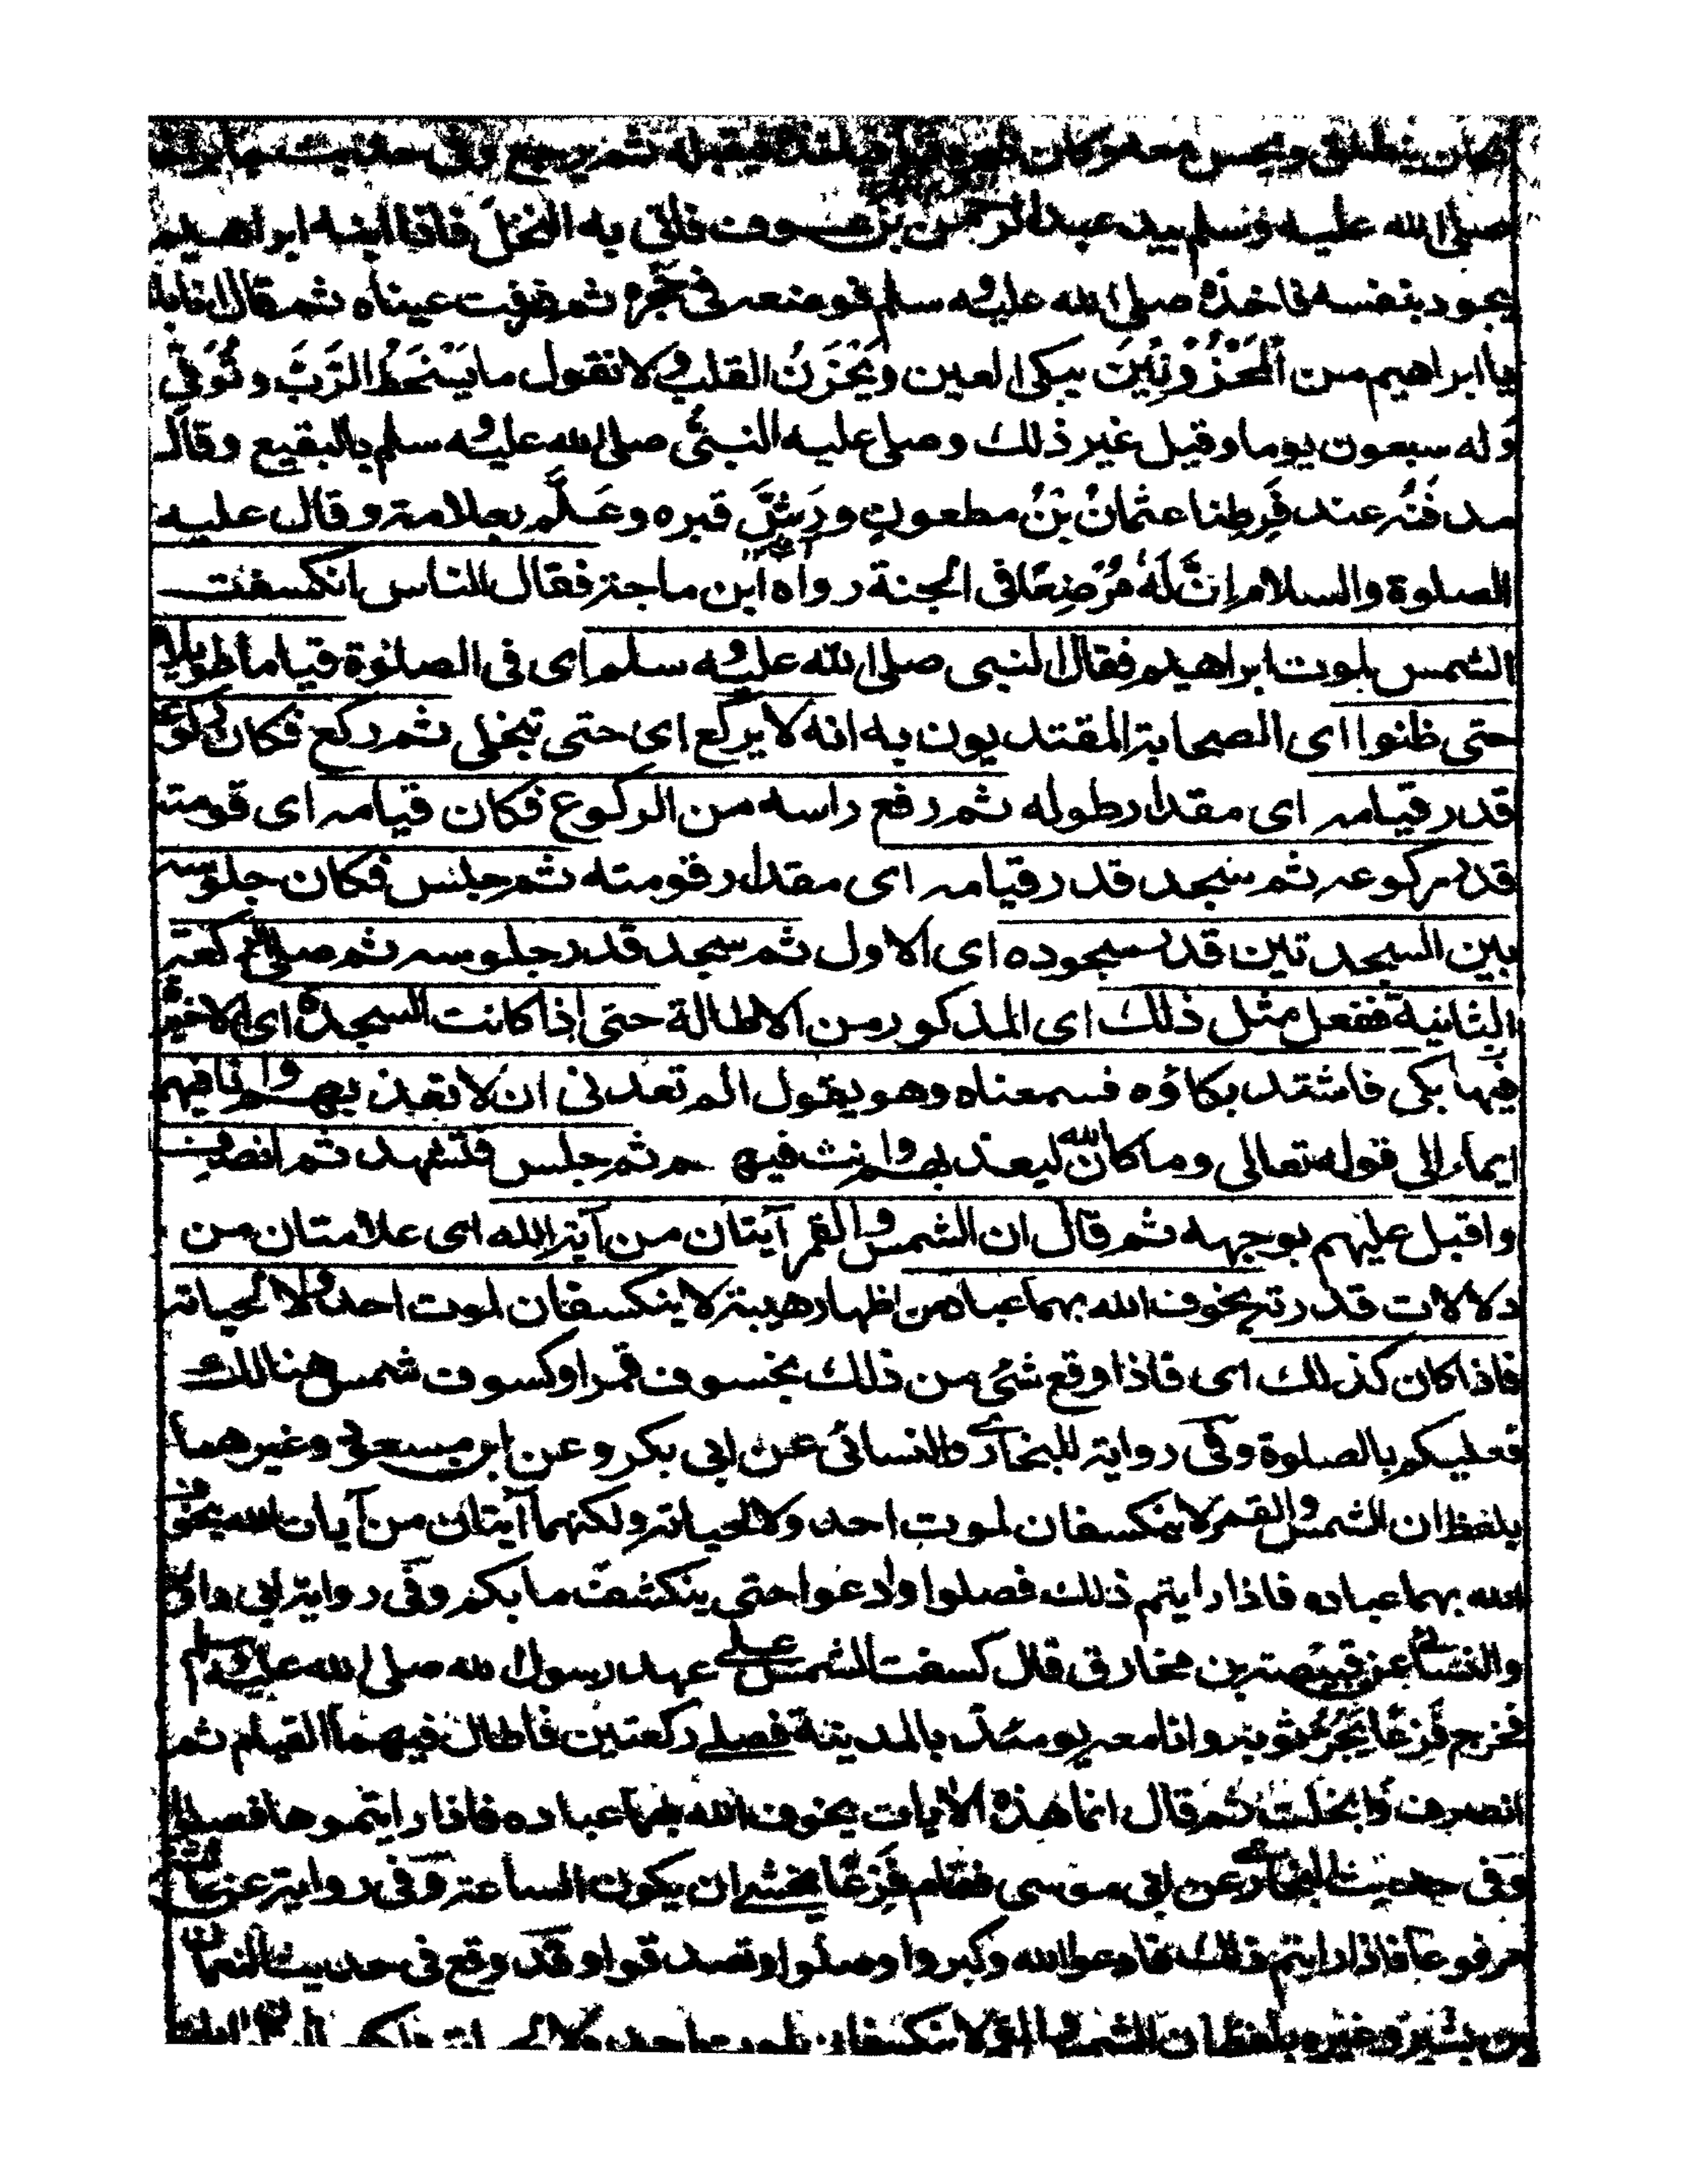 فكان ينطلق ونحن معه وكان فيقبله ثم يرجع وفى حديث جابر اخذ
صلى الله عليه وسلم بيد عبد الرحمن بن عوف فاتى به النخل فاذا ابنه ابراهيم
يجود بنفسه فاخذه صلى الله عليه وسلم فوضعه فى حجره ثم ذرفت عيناه ثم قال انا بك
يا ابراهيم من المَحْزُوْنِيْنَ يبكى العين ويَحْزَنُ القلب ولا نقول ما يَسْخَطُ الرَّبَّ وتُوُفِّيَ
وله سبعون يوما وقيل غير ذلك وصلى عليه النبىُّ صلى الله عليه وسلم بالبقيع وقال
مدفَنُه عند فَرَطِنا عثمانُ بْنُ مطعونٍ ورَشَّ قبره وعَلَّم بعلامة وقال عليه
الصلوة والسلام اِنَّ لَهُ مُرْضِعًا فى الجنة رواه ابن ماجة فقال الناس انكسفت
الشمس لموت ابراهيم فقال النبى صلى الله عليه وسلم اى فى الصلوة قياما طويلا
حتى ظنوا اى الصحابة المقتديون به انه لا يركع اى حتى تجلى ثم ركع فكان ركوعه
قدر قيامه اى مقدار طوله ثم رفع راسه من الركوع فكان قيامه اى قومته
قدر ركوعه ثم سجد قدر قيامه اى مقدار قومته ثم جلس فكان جلوسه
بين السجدتين قدر سجوده اى الاول ثم سجد قدر جلوسه ثم صلى الركعة
الثانية ففعل مثل ذلك اى المذكور من الاطالة حتى اذا كانت السجدة اى الاخيرة
فيها بكى فاشتد بكاؤه فسمعناه وهو يقول الم تعدنى ان لا تعذبهم وانا فيهم
ايماء الى قوله تعالى وما كان الله ليعذبهم وانت فيهم ثم جلس فتشهد ثم انصرف
واقبل عليهم بوجهه ثم قال ان الشمس والقمر آيتان من آية الله اى علامتان من
دلالات قدرته يخوف الله بهما عباده من اظهار هيبته لا ينكسفان لموت احد ولا لحياته
فاذا كان كذلك اى فاذا وقع شئ من ذلك بخسوف قمر او كسوف شمس هنالك
فعليكم بالصلوة وفى رواية للبخارى والنسائى عن ابى بكر وعن ابن مسعود وغيرهما
بلفظ ان الشمس والقمر لا ينكسفان لموت احد ولا لحياته ولكنهما آيتان من آيات الله يخوف
الله بهما عباده فاذا رايتم ذلك فصلوا وادعوا حتى ينكشف ما بكم وفى رواية ابى داود
والنسائى عن قبيصة بن مخارق قال كسفت الشمس على عهد رسول الله صلى الله عليه وسلم
فخرج فَزِعًا يَجُرُّ ثوبه وانا معه يومئذ بالمدينة فصلى ركعتين فاطال فيهما القيام ثم
انصرف وانجلت ثم قال انما هذه الايات يخوف الله بها عباده فاذا رايتموها فصلوا
وفى حديث البخارى عن ابى موسى فقام فَزِعًا يخشى ان يكون الساعة وفى رواية عن عائشة
مرفوعا فاذا رايتم ذلك فادعوا الله وكبروا وصلوا وتصدقوا وقد وقع فى حديث النعمان
بن بشير وغيره بلفظ ان الشمس والقمر لا ينكسفان لموت احد ولا لحياته